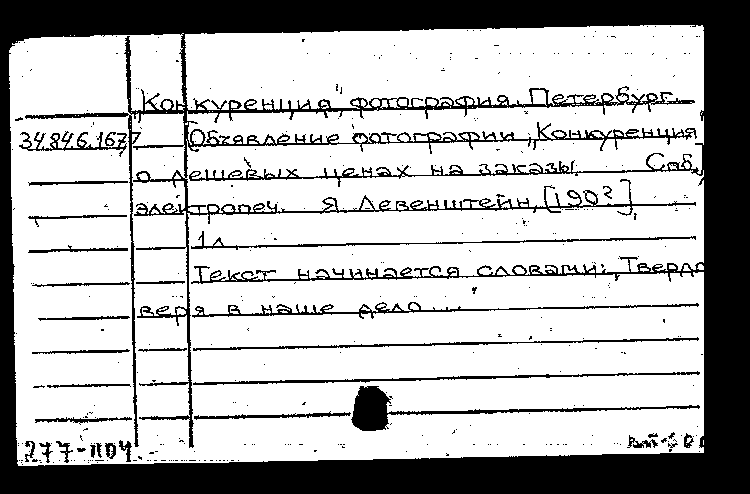 „Конкуренция", фотография. Петербург.
34.846.1677 [Объявление фотографии „Конкуренция"
о дешевых ценах на заказы. Спб.,]
электропеч. Я Левенштейн, [190?].
1 л.
Текст начинается словами: „Твердо
веря в наше дело..."
277-поч.